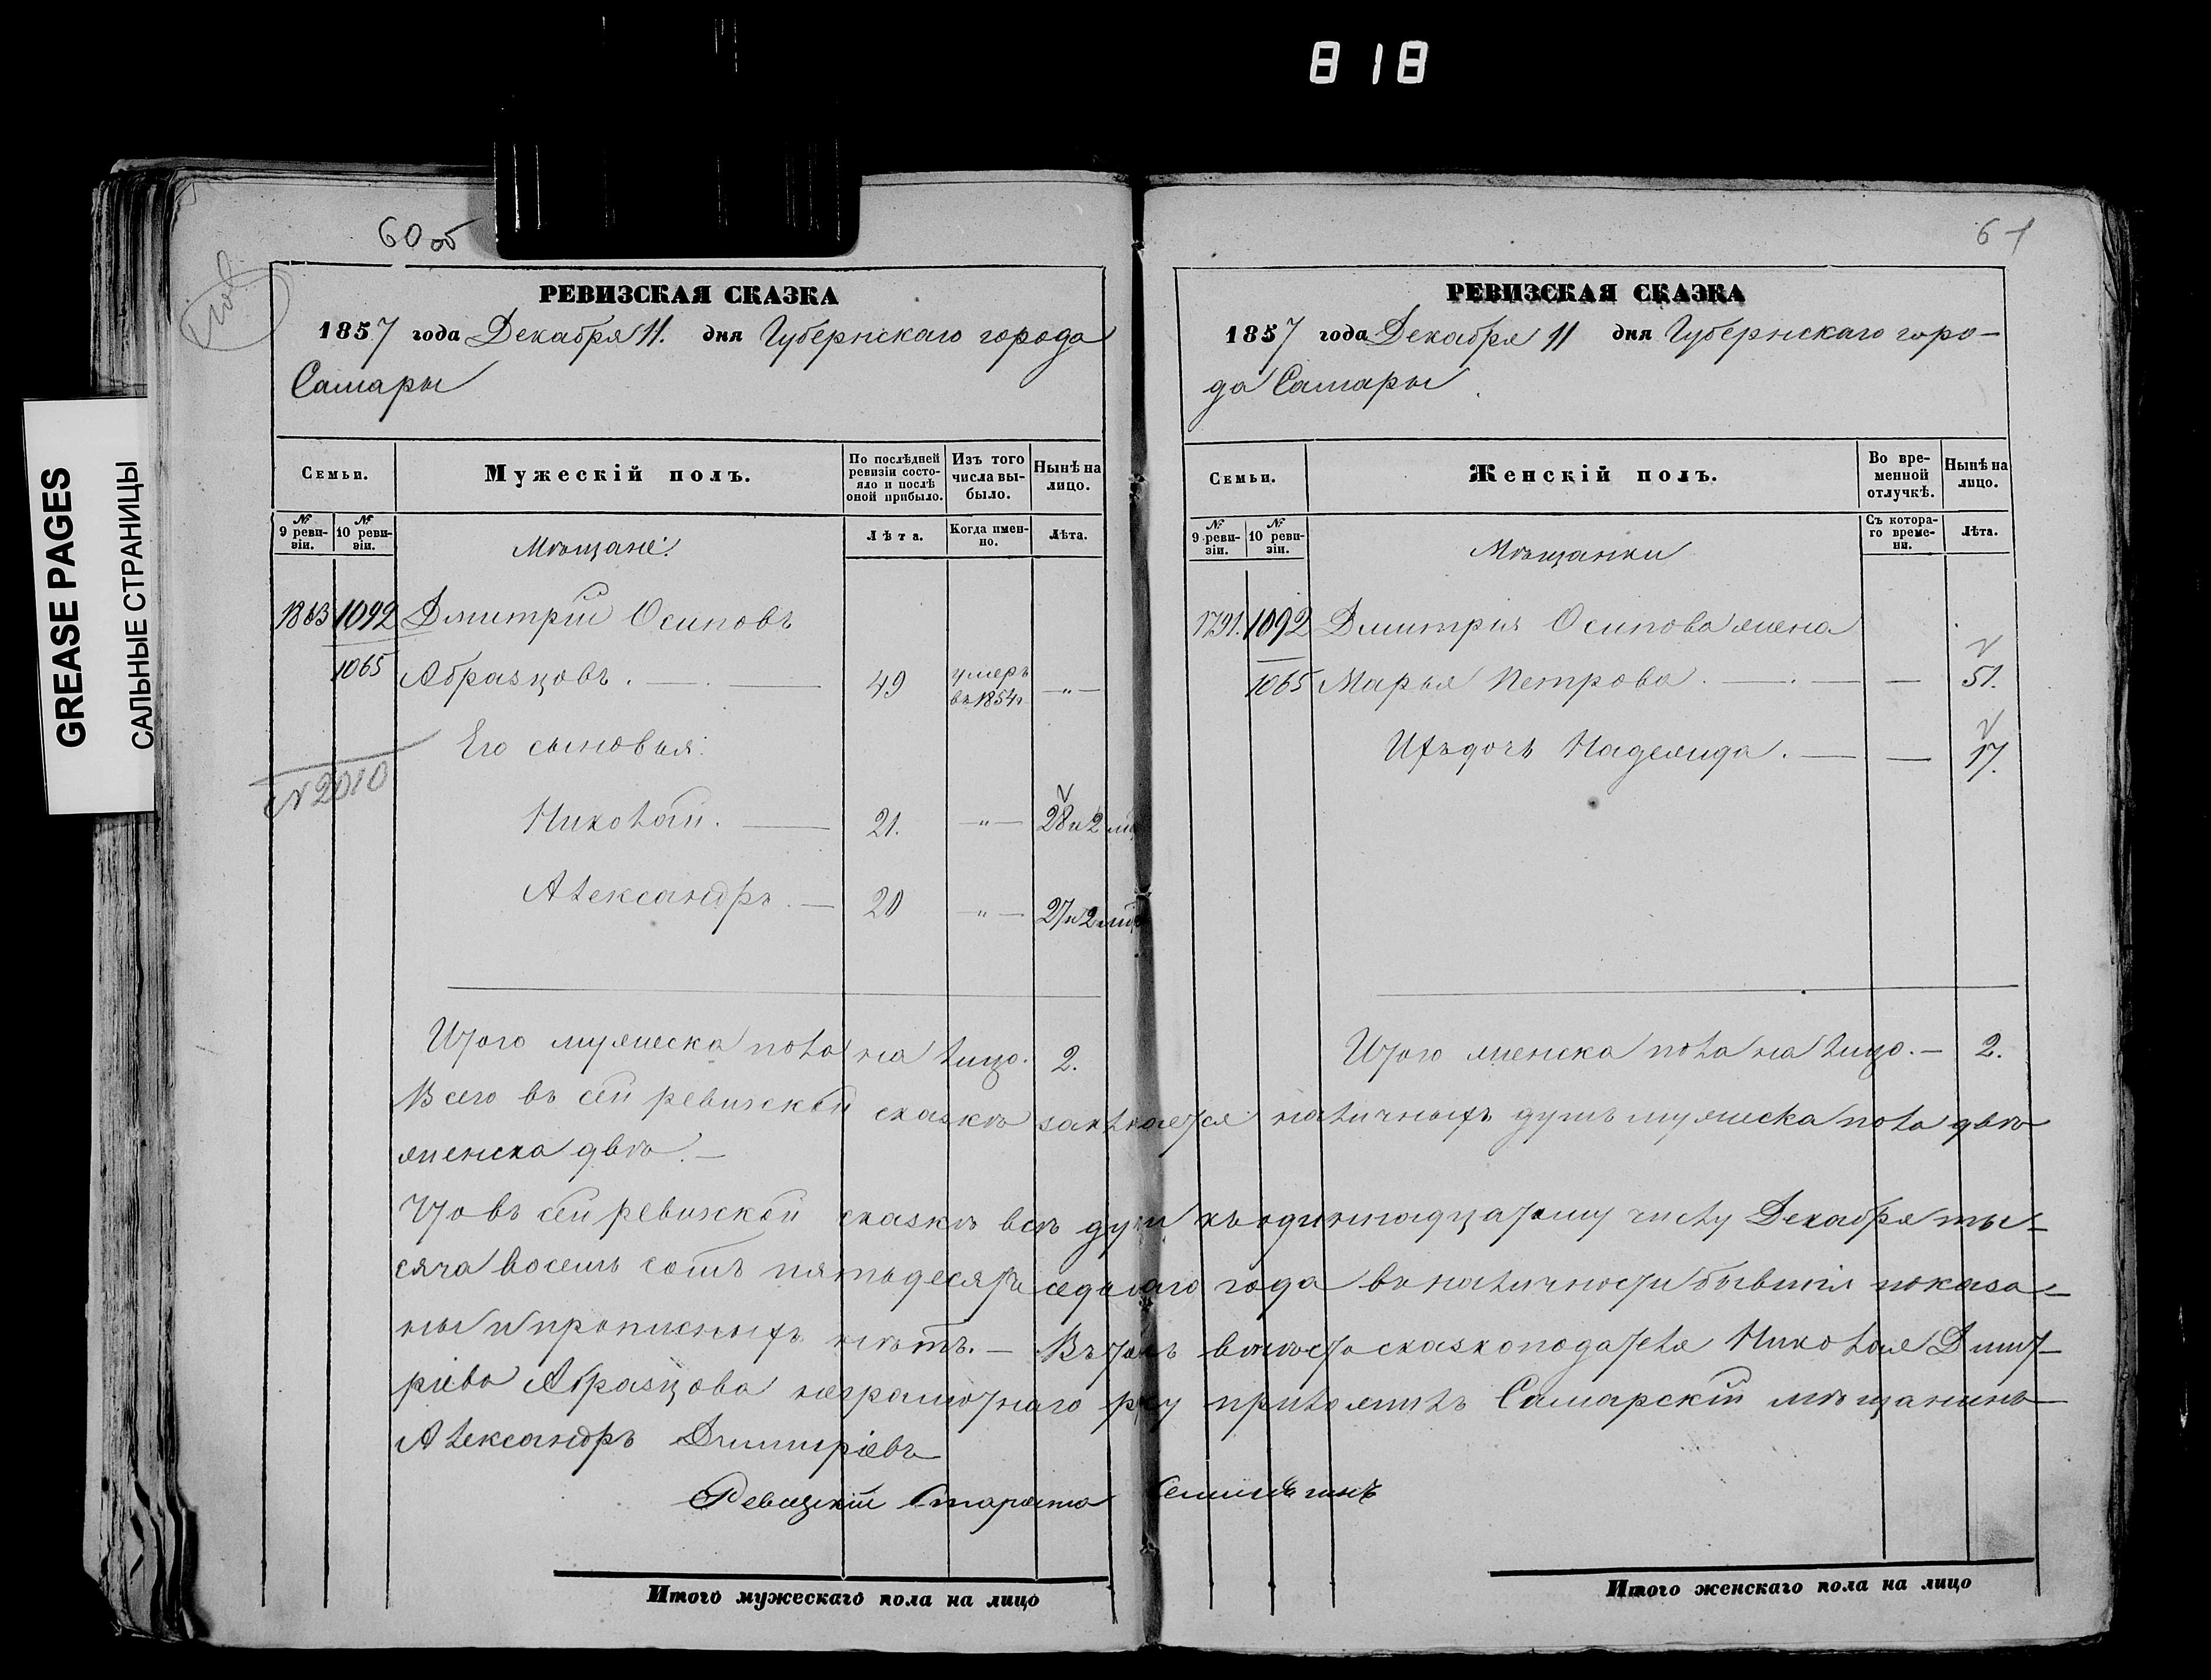 818
GREASE PAGES
САЛЬНЫЕ СТРАНИЦЫ
60 об
РЕВИЗСКАЯ СКАЗКА
1857 года Декабря 11. дня Губернскаго города
Самары
Семьи.
Мужескій полъ.
По послѣдней ревизіи состояло и послѣ оной прибыло.
Изъ того числа выбыло.
Нынѣ на лицо.
№ 9 ревизіи.
№ 10 ревизіи.
Мѣщане.
Лѣта.
Когда именно.
Лѣта.
1092 Дмитрій Осиповъ
1065 Абразцовъ. — 49 умеръ въ 1854г —„—
Его сыновья:
№ 2010
Николай. — 21. —„— 28 и 2 мѣ
Александръ. — 20 —„— 27 и 2 мѣ
Итого мужеска пола на лицо. 2.
61
РЕВИЗСКАЯ СКАЗКА
1857 года Декабря 11 дня Губернскаго горо-
да Самары
Семьи.
Женскій полъ.
Во временной отлучкѣ.
Нынѣ на лицо.
№ 9 ревизіи.
№ 10 ревизіи.
Мѣщанки
Съ котораго времени.
Лѣта.
1791. 1092 Дмитрія Осипова жена
1065 Марья Петрова. — — 51.
Ихъ дочь Надежда. — — 17.
Итого женска пола на лицо. — 2.
Всего въ сей ревизской сказкѣ заключается наличныхъ душъ мужеска пола двѣ
женска двѣ. —
Что въ сей ревизской сказкѣ всѣ души къ одиннадцатому числу Декабря ты-
сяча восемь сотъ пятьдесятъ седьмаго года въ наличности бывшія показа-
ны и прописныхъ нѣтъ. — Въ томъ вмѣсто сказкоподателя Николая Дмит-
ріева Абразцова неграмотнаго руку приложилъ Самарскій мѣщанинъ
Александръ Димитріевъ
Ревизскій Староста
Итого мужескаго пола на лицо
Итого женскаго пола на лицо